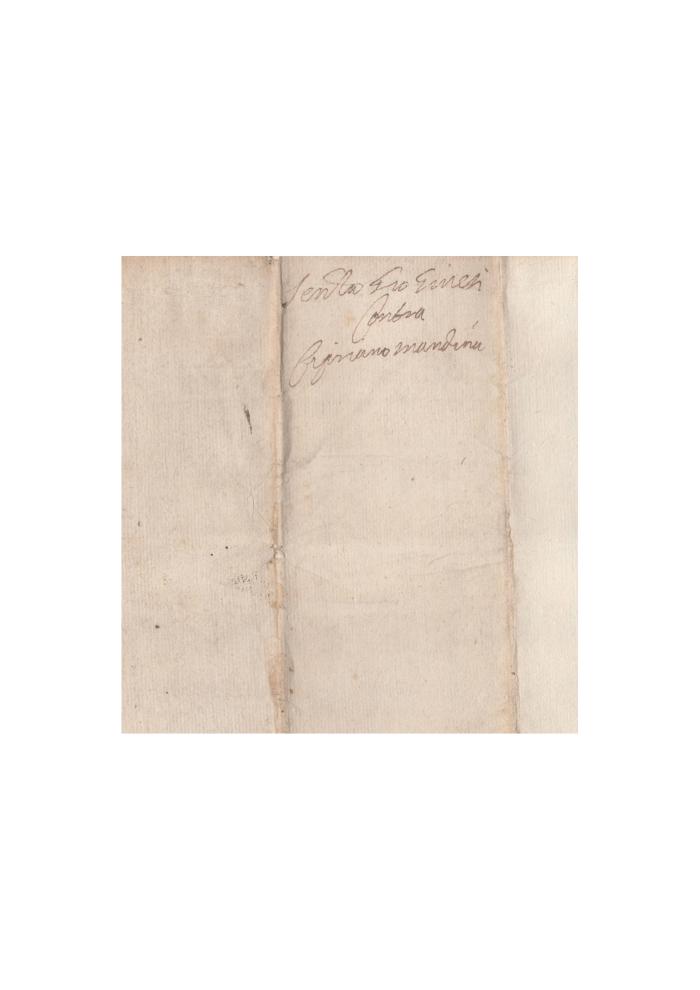 Senta Gio Ginesi
Contra
Cipriano mandina